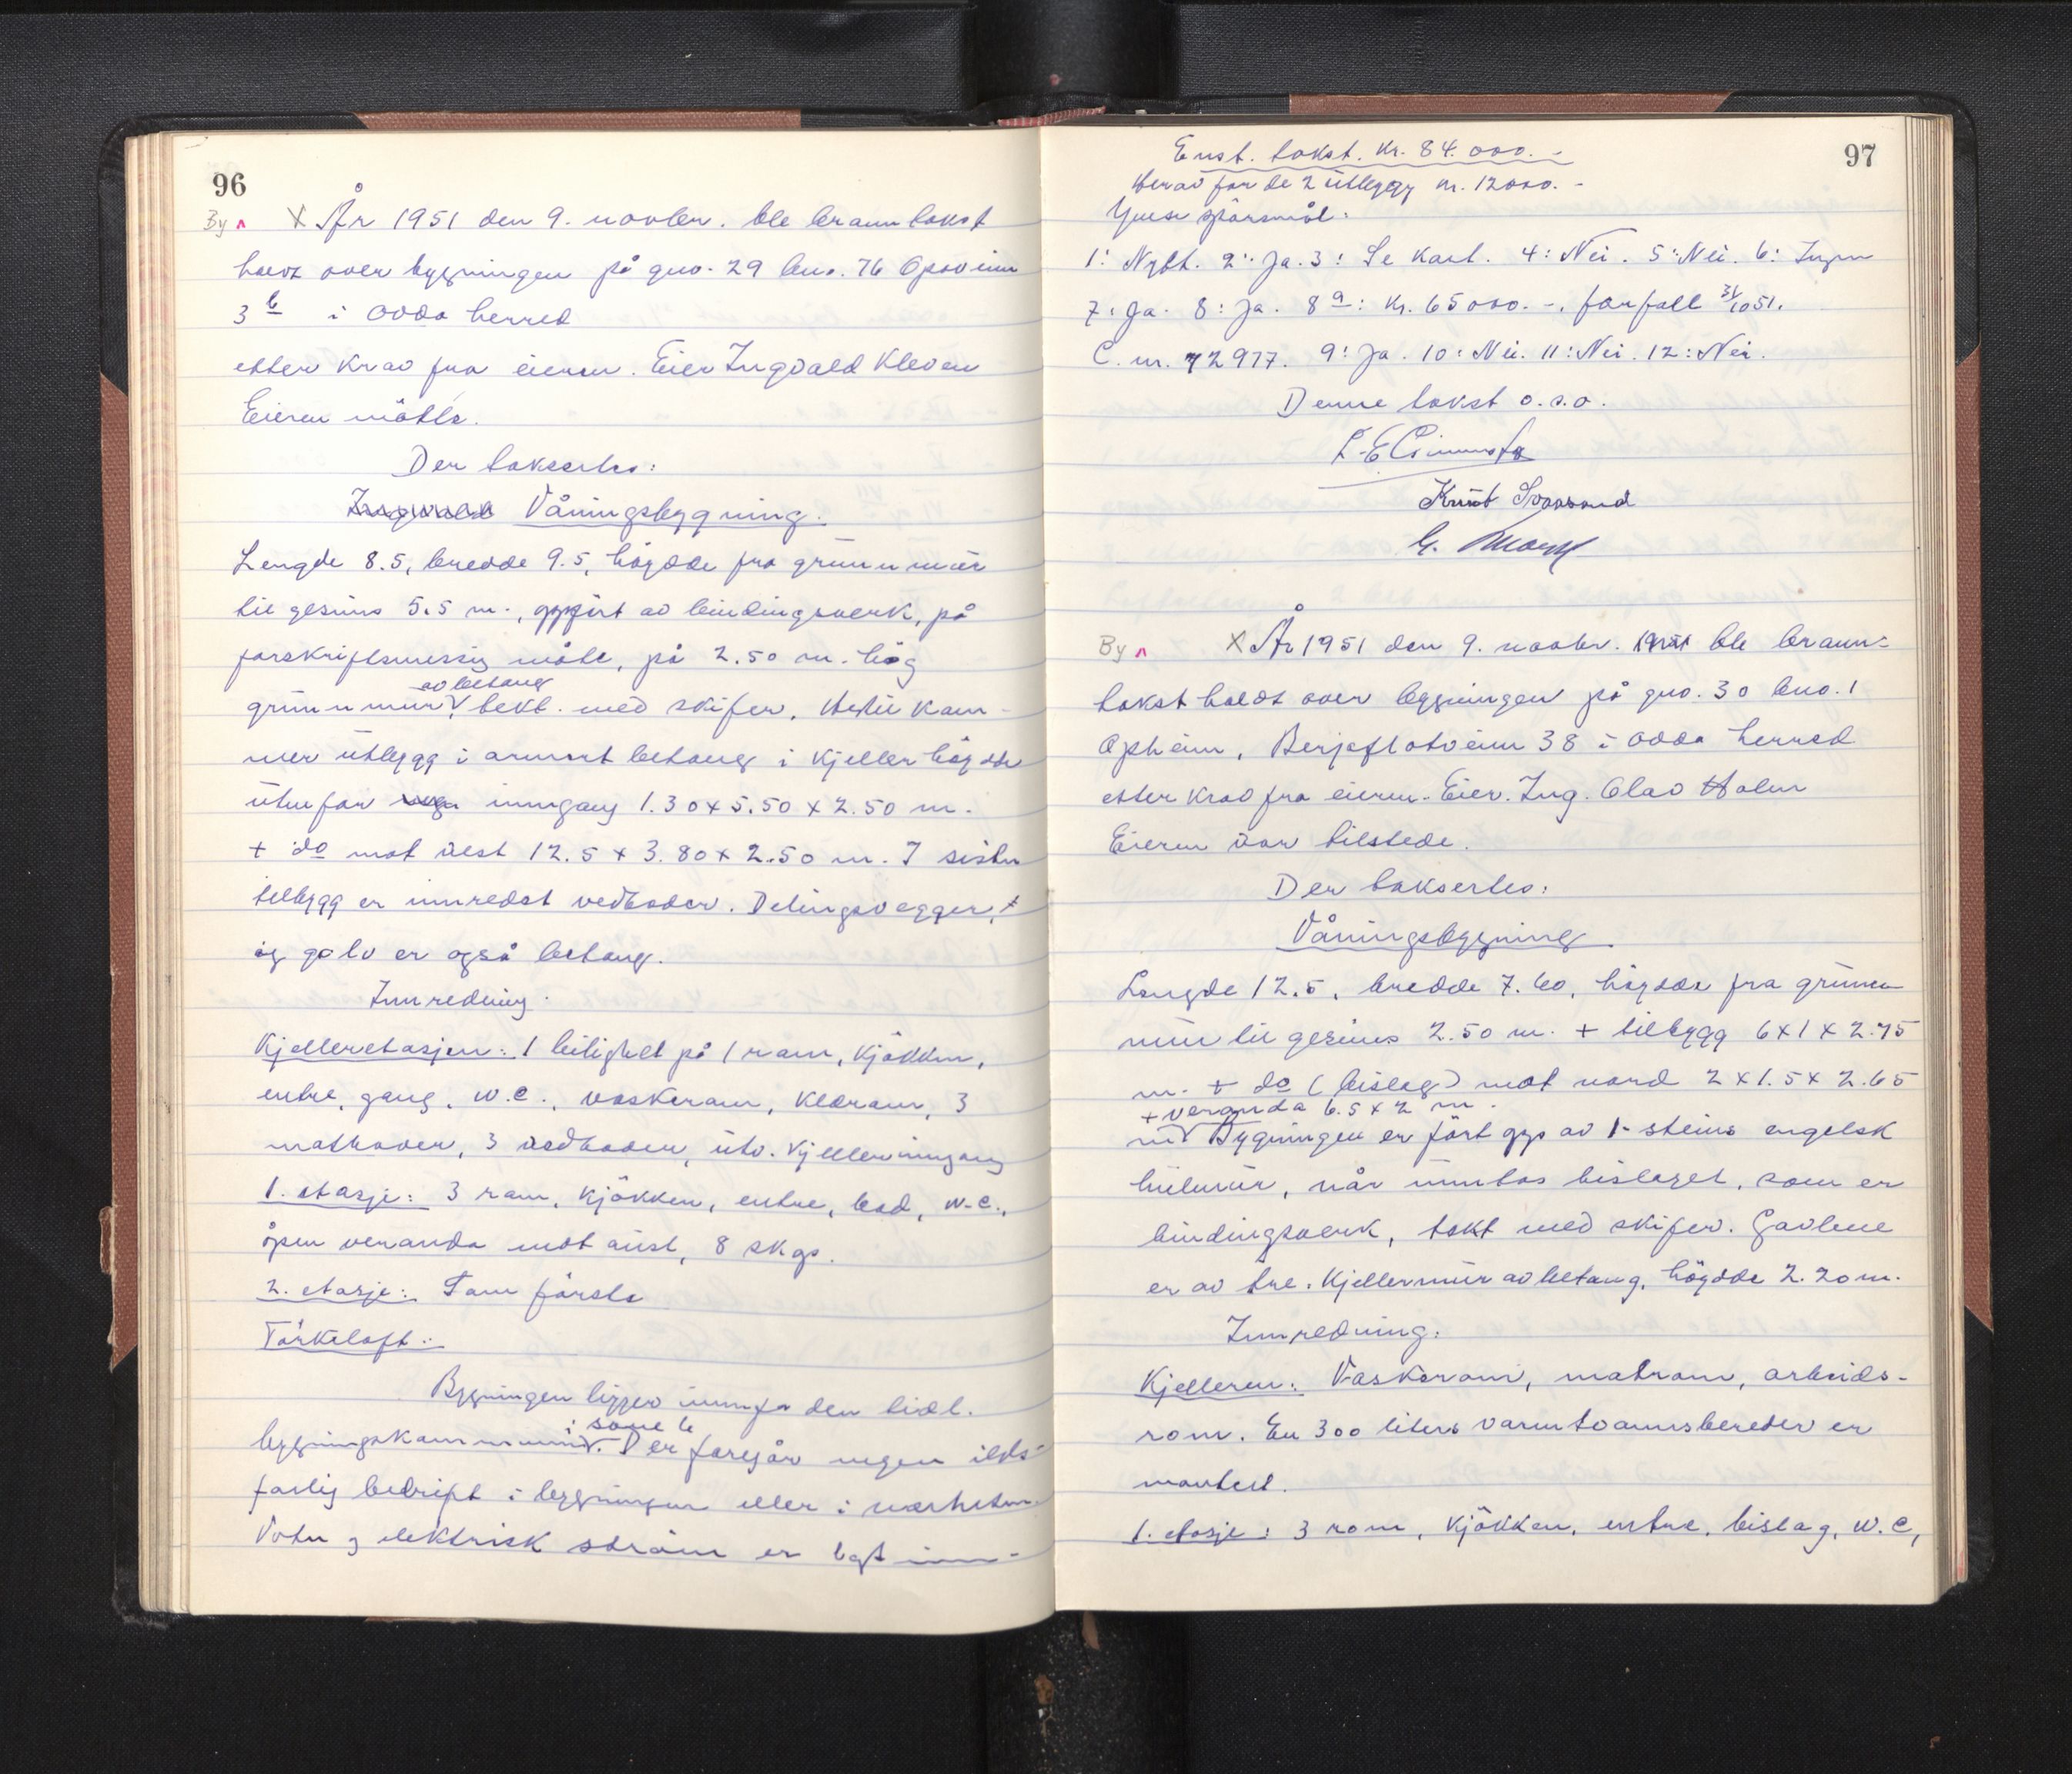 96
By ^ X År 1951 den 9. novbr. ble branntakst
holdt over bygningen på gno. 29 bno. 76 Opoveim
3 b i Odda herred
etter krav fra eieren. Eier Ingvald Kleven
Eieren møtte.
Der taksertes:
Ingvald Våningsbygning.
Lengde 8.5, bredde 9.5, høgdde fra grunnmur
til gesims 5.5 m., oppført av bindingsverk, på
forskriftsmessig måte, på 2.50 m. høg
av betong
grunnmur V, tekt med skifer. Hertil kom-
mer utbygg i armert betong i kjellerhøgde
utenfor inngang 1.30 x 5.50 x 2.50 m.
+ do mot vest 12.5 x 3.80 x 2.50 m. I siste
tilbygg er innredet vedboder. Delingsvegger,
og golv er også betong.
Innredning.
Kjelleretasjen: 1 leilighet på 1 rom, kjøkken,
entre, gang, w.c., vaskerom, kledrom, 3
matboder, 3 vedboder, utv. kjellerinngang
1. etasje: 3 rom, kjøkken, entre, bad, w.c.,
åpen veranda mot aust, 8 skap.
2. etasje: Som første
Tørkeloft:
Bygningen ligger innafor den tidl.
i sone b
bygningskommune V. Der foregår ingen ilds-
farlig bedrift i bygningen eller i nærheten.
Vatn og elektrisk strøm er lagt inn.
97
Enst. takst. kr. 84.000.-
Herav for de 2 utbygg kr. 12000.-
Ymse spørsmål:
1: Nybt. 2: Ja. 3: Se kart. 4: Nei. 5: Nei. 6: Ingen
7: Ja. 8: Ja. 8 a: Kr. 65000.-, forfall 31/1051.
C. nr. 72977. 9: Ja. 10: Nei. 11: Nei. 12: Nei.
Denne takst o.s.o.
Knut
G.
By ^ X År 1951 den 9. novbr. 1951 ble brann-
takst holdt over bygningen på gno. 30 bno. 1
Opheim, Berjeflotveim 38 i Odda herred
etter krav fra eieren. Eier. Ing. Olav Holm
Eieren var tilstede.
Der taksertes:
Våningsbygning
Lengde 12.5, bredde 7.60, høgdde fra grunn
mur til gesims 2.50 m. + tilbygg 6 x 1 x 2.75
m. + do (bislag) mot nord 2 x 1.5 x 2.65
+ veranda 6.5 x 2 m.
m V Bygningen er ført opp av 1- steins engelsk
hulmur, når unntas bislaget, som er
bindingsverk, tekt med skifer. Gavlene
er av tre. Kjellermur av betong, høgdde 2.20 m.
Innredning:
Kjelleren: Vaskerom, matrom, arbeids-
rom. En 300 liters varmtvannsbereder er
montert.
1. etasje: 3 rom, kjøkken, entre, bislag, w.c,